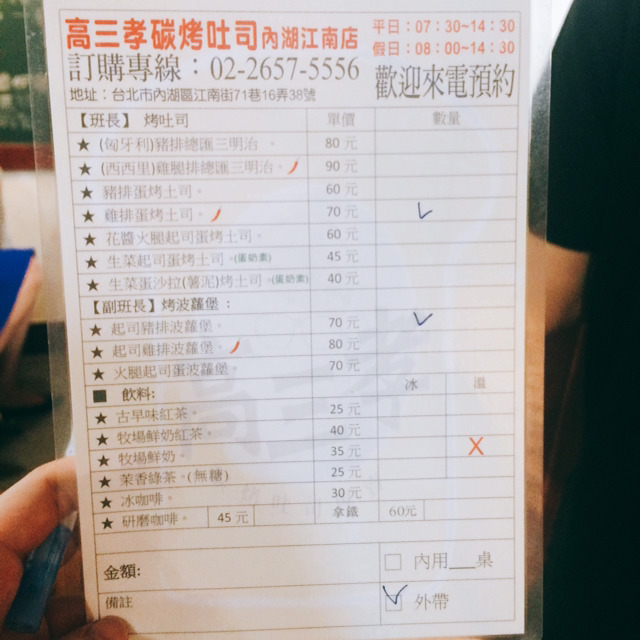 高三孝碳烤吐司內湖江南店 平日：07：30~14：30
假日：08：00~14：30
訂購專線：02-2657-5556 歡迎來電預約
地址：台北市內湖區江南街71巷16弄38號
【班長】 烤吐司 單價 數量
★ (匈牙利)豬排總匯三明治。 80 元
★ (西西里)雞腿排總匯三明治。 90 元
★ 豬排蛋烤土司。 60 元
★ 雞排蛋烤土司。 70 元
★ 花醬火腿起司蛋烤土司。 60 元
★ 生菜起司蛋烤土司。(蛋奶素) 45 元
★ 生菜蛋沙拉(薯泥)烤土司。(蛋奶素) 40 元
【副班長】烤波蘿堡：
★ 起司豬排波蘿堡。 70 元
★ 起司雞排波蘿堡。 80 元
★ 火腿起司蛋波蘿堡。 70 元
■ 飲料: 冰 溫
★ 古早味紅茶。 25 元
★ 牧場鮮奶紅茶。 40 元
★ 牧場鮮奶。 35 元 X
★ 茉香綠茶。(無糖) 25 元
★ 冰咖啡。 30 元
★ 研磨咖啡。 45 元 拿鐵 60元
金額: □ 內用___桌
備註 □ 外帶